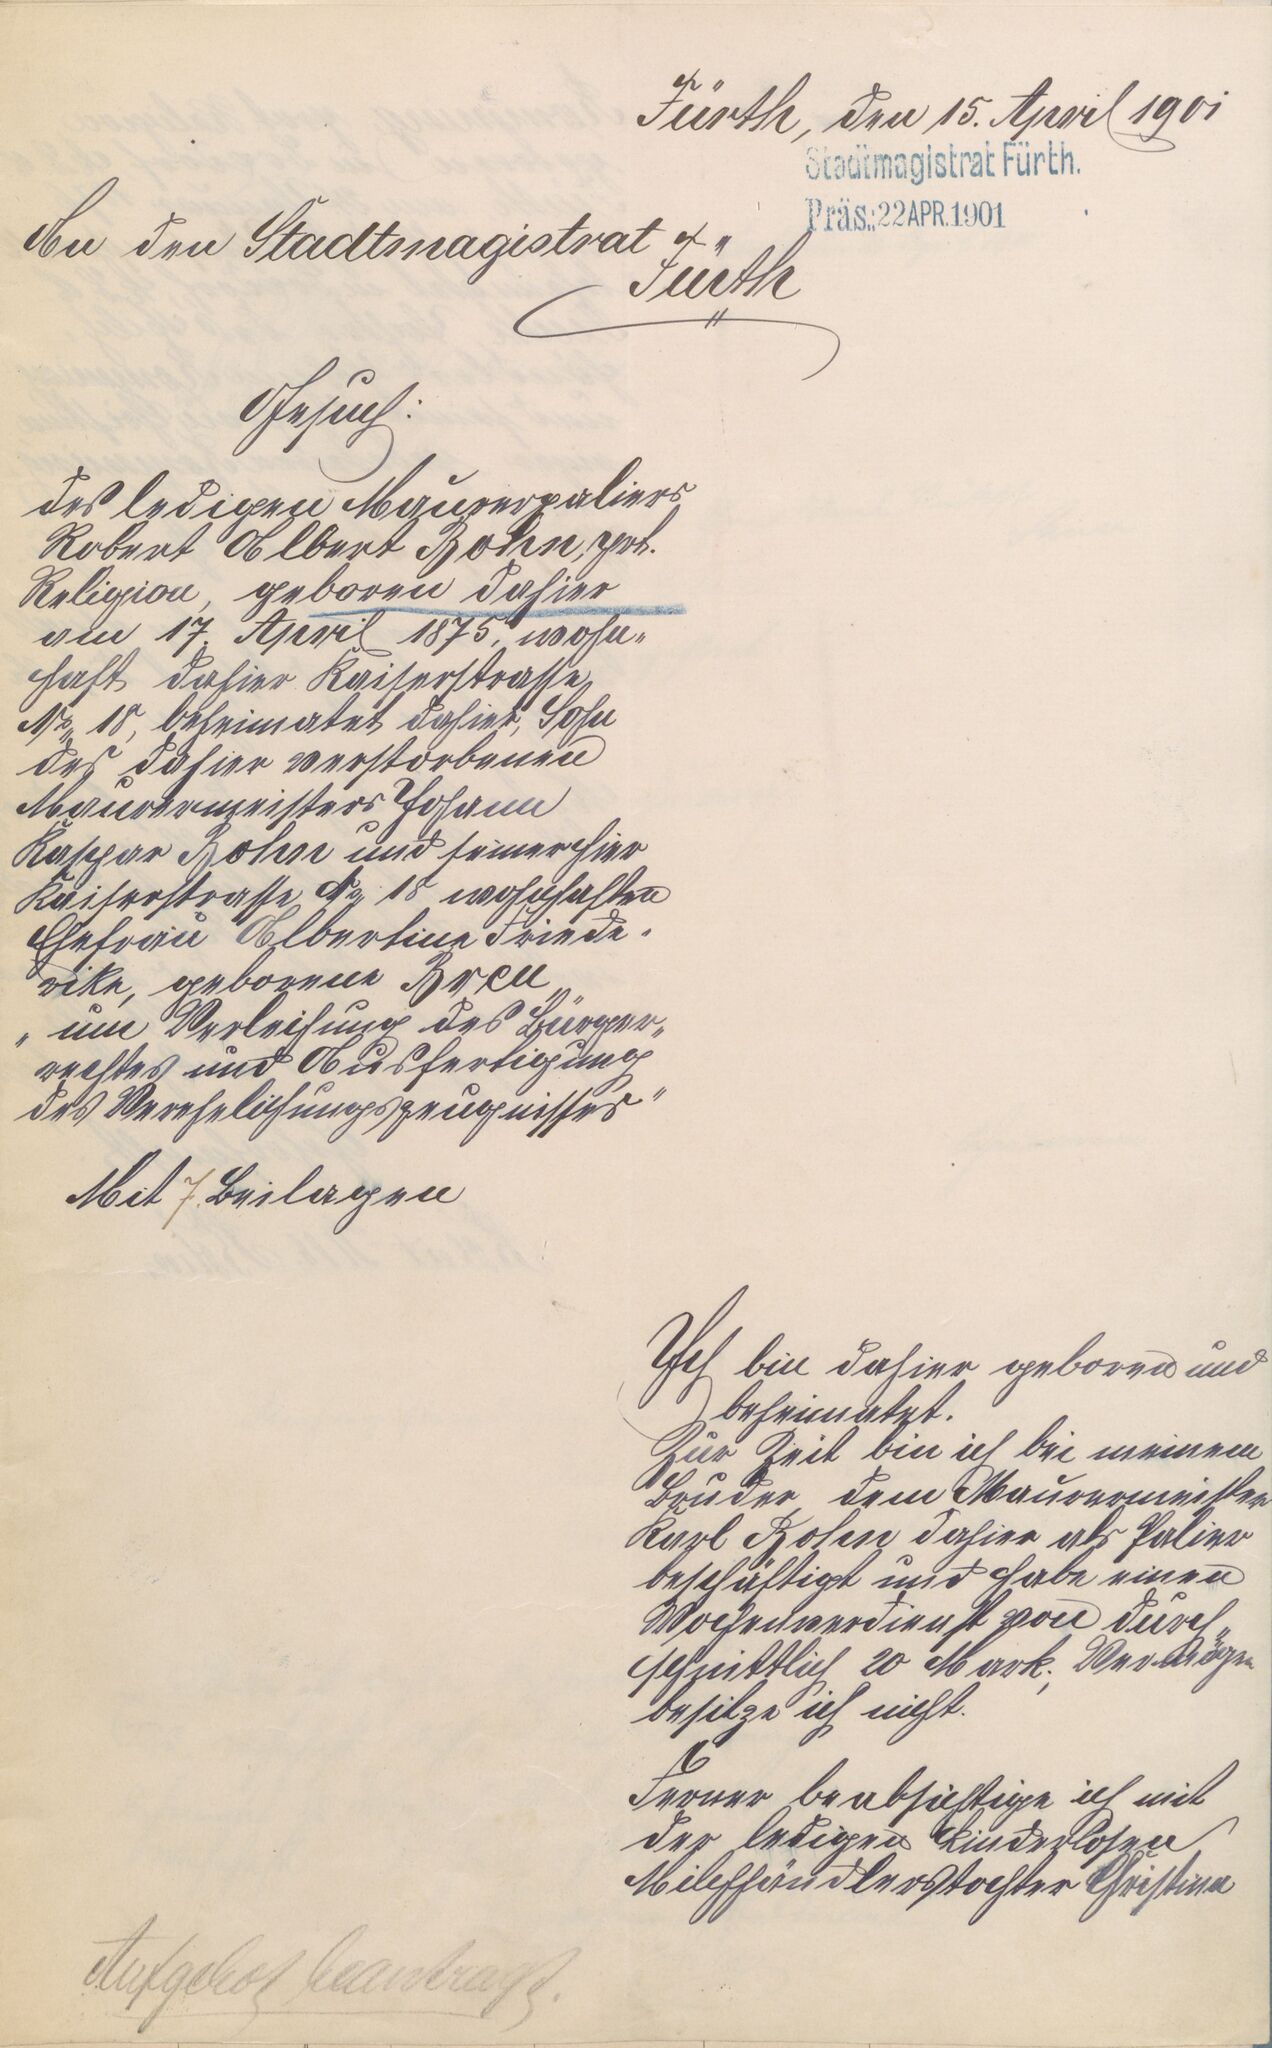 Fürth, den 15. April 1901
Stadtmagistrat Fürth.
Präs.: 22 APR. 1901
An den Stadtmagistrat
Fürth
Gesuch:
des ledigen Maurerpaliers
Robert Albert Bohn, prt.
Religion, geboren dahier
am 17. April 1875, wohn-
haft dahier Kaiserstrasse
No 18, beheimatet dahier, Sohn
des dahier verstorbenen
Maurermeisters Johann
Kaspar Bohn und seiner hier
Kaiserstrasse No 18 wohnhaften
Ehefrau Albertine Friede-
rike, geborene Breu
"um Verleihung des Bürger-
rechtes und Ausfertigung
des Verehelichungszeugnisses"
Mit 7. Beilagen
Ich bin dahier geboren und
beheimatet.
Zur Zeit bin ich bei meinem
Bruder, dem Maurermeister
Karl Bohn dahier als Palier
beschäftigt und habe einen
Wochenverdienst von durch-
schnittlich 20 Mark; Vermögen
besitze ich nicht.
Ferner beabsichtige ich mit
der ledigen kinderlosen
Milchhändlerstochter Christina
Aufgebot beantragt.